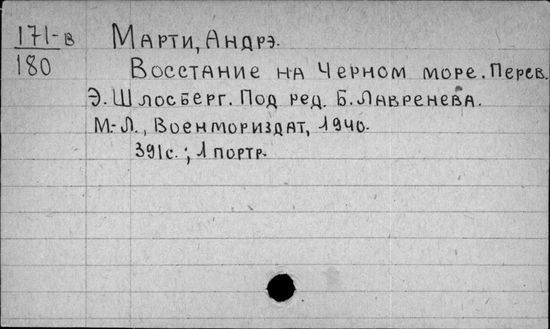 171-в
180
Марти, Андрэ.
Восстание на Черном море. Перев.
Э. Шлосберг. Под ред. Б. Лавренева.
М.-Л., Военмориздат, 1940.
391с.; 1 портр.